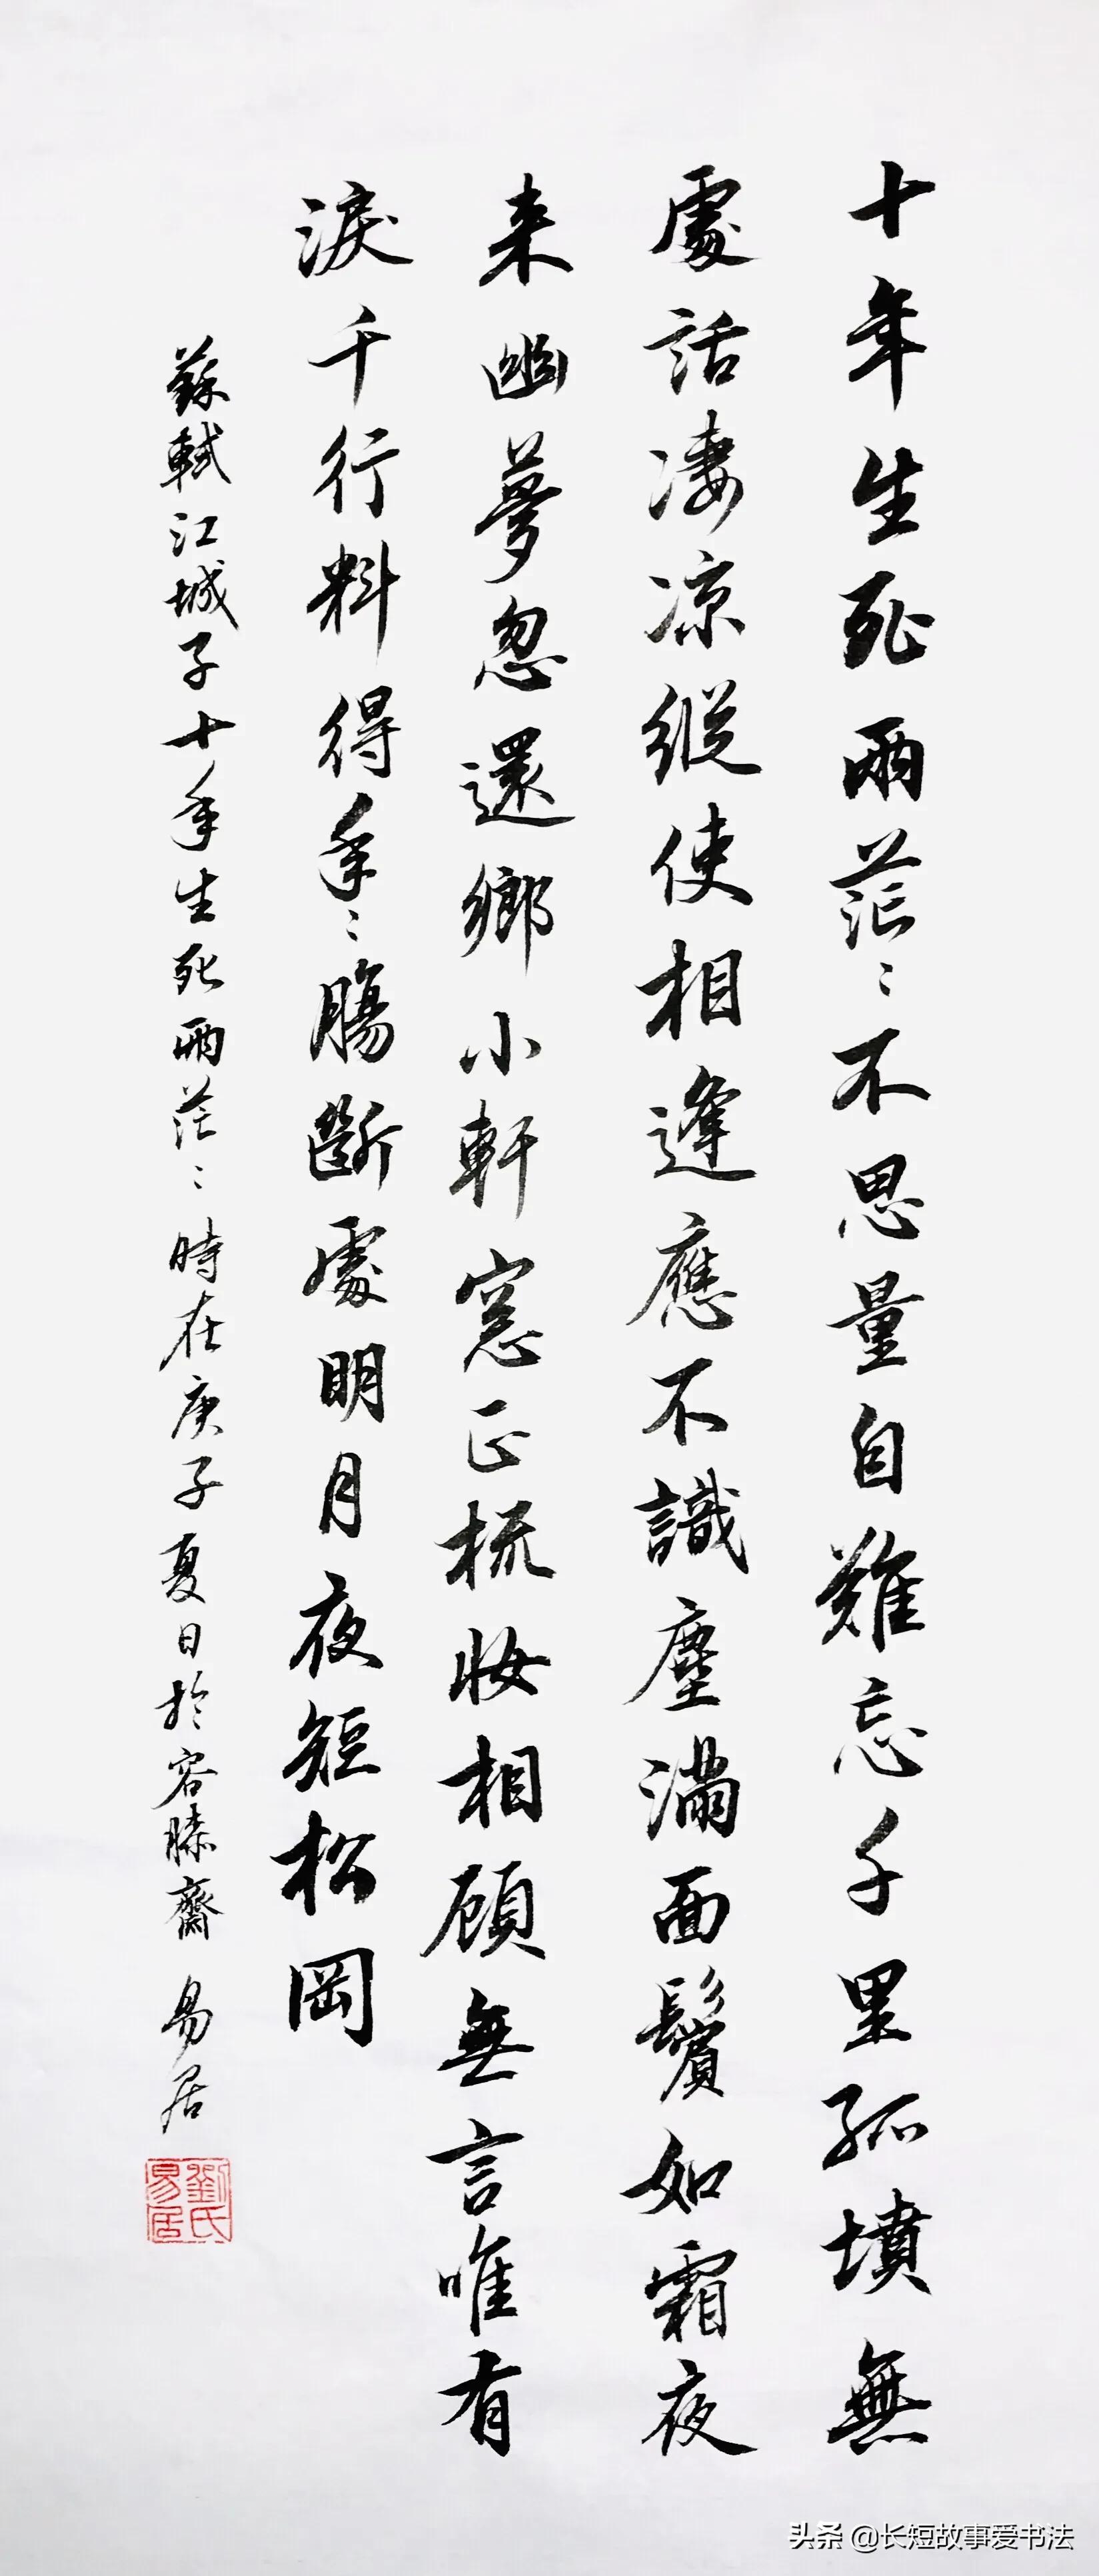 十年生死兩茫〻不思量自難忘千里孤墳無
處話淒凉縱使相逢應不識塵滿面鬢如霜夜
来幽夢忽還鄉小軒窓正梳妝相顧無言唯有
淚千行料得年〻腸斷處明月夜短松岡
蘇軾江城子十年生死兩茫〻時在庚子夏日於容膝齋 易居
劉氏易居
头条 @长短故事爱书法